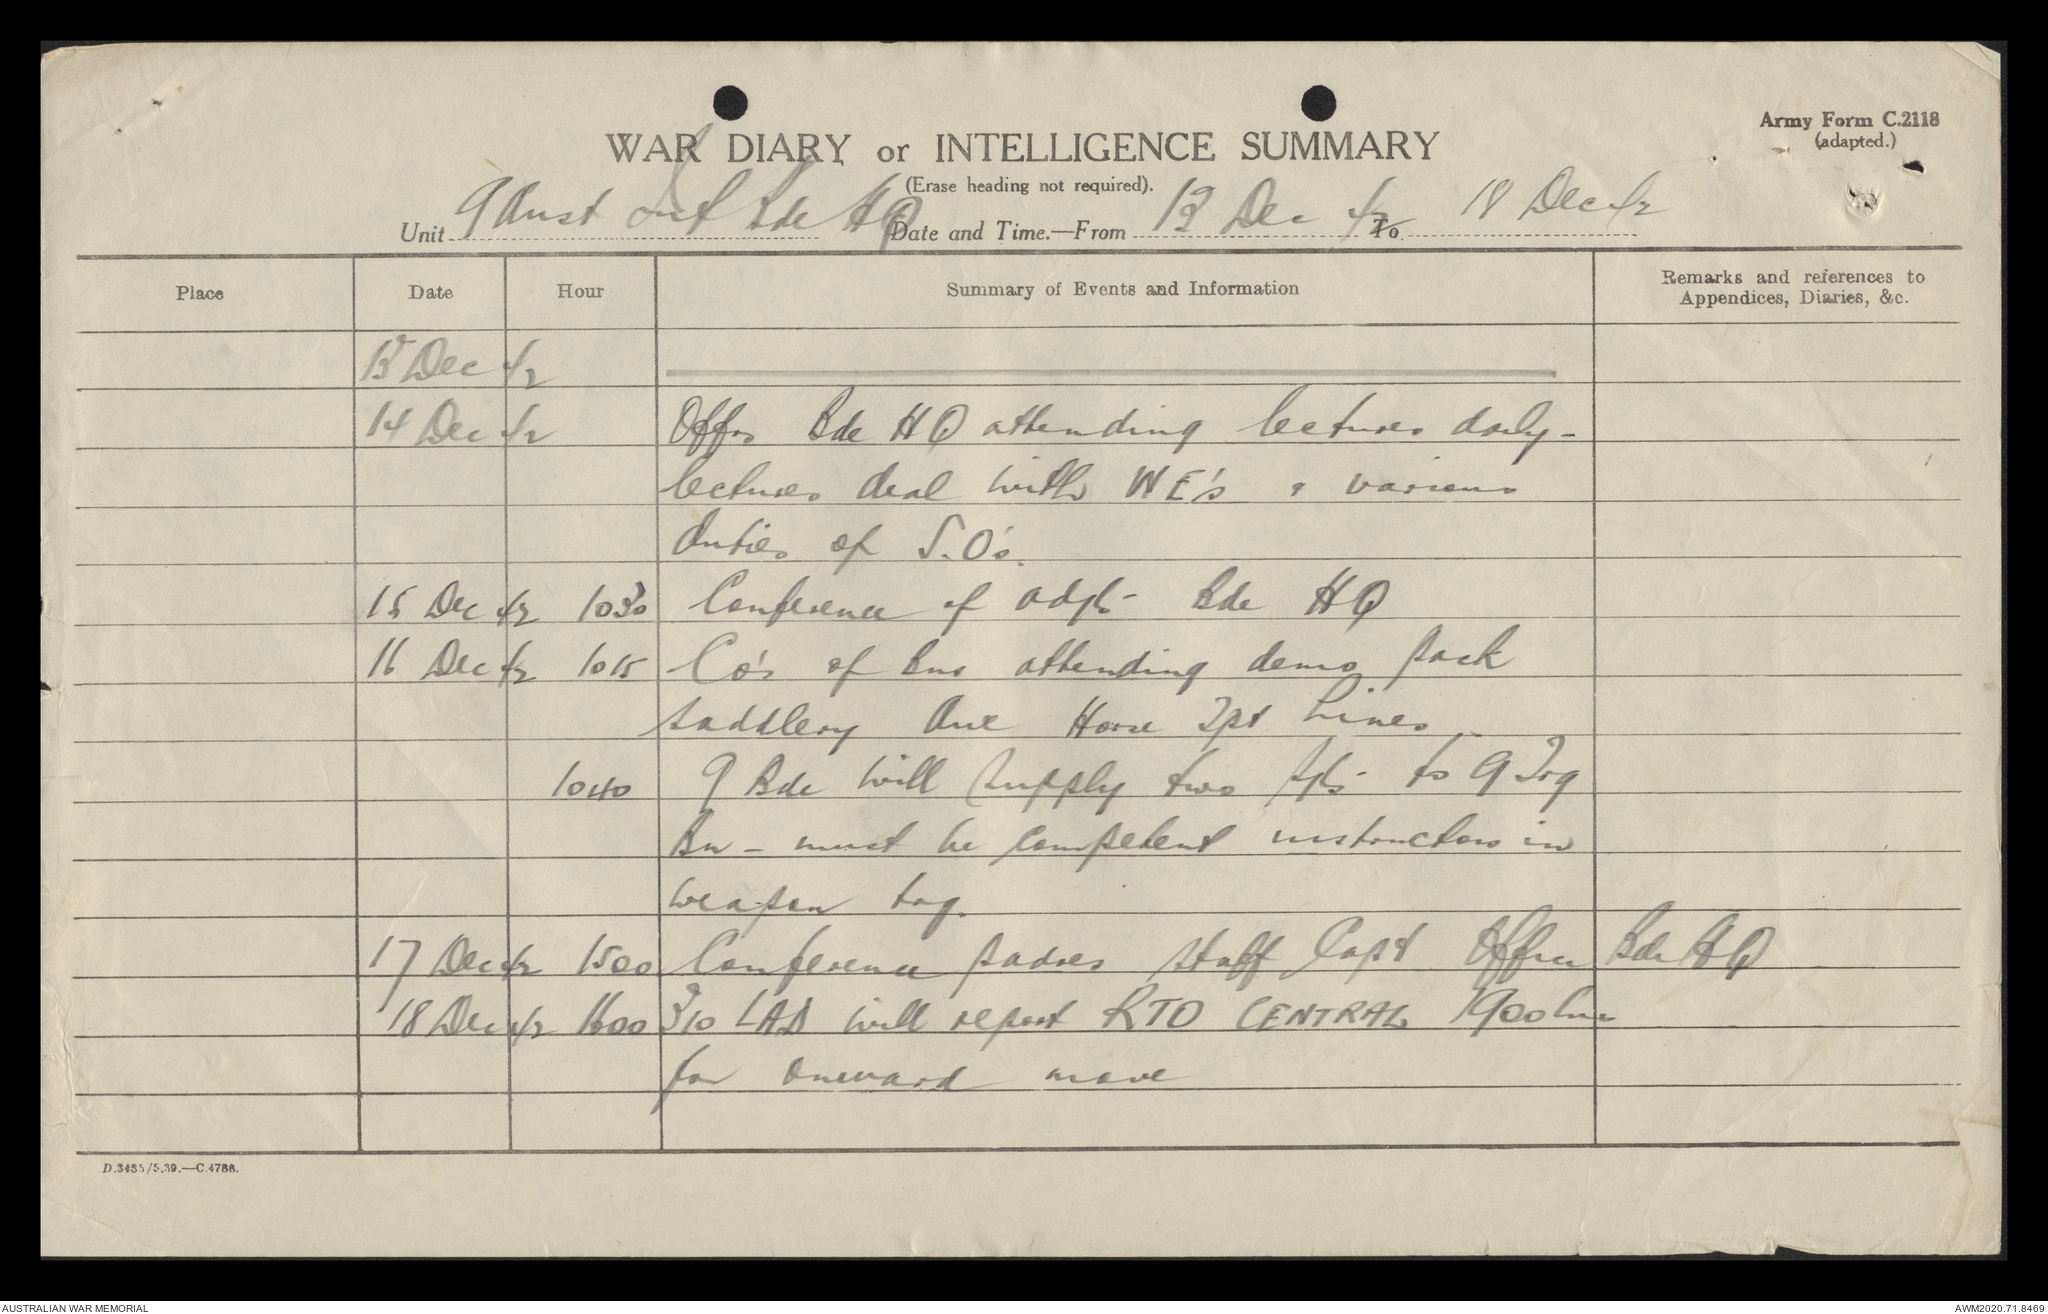 Army Form C.2118
(adapted.)
WAR DIARY or INTELLIGENCE SUMMARY
(Erase heading not required).
Unit 9 Aust Inf Bde HQ Date and Time.—From 13 Dec 42 To 18 Dec 42
Place Date Hour Summary of Events and Information Remarks and references to Appendices, Diaries, &c.
13 Dec 42
14 Dec 42 Offrs Bde HQ attending lectures daily -
lectures deal with WE's & various
duties of S.O's.
15 Dec 42 1030 Conference of adjts - Bde HQ
16 Dec 42 1015 Co's of bns attending demo pack
saddlery One Horse Tpt Lines
1040 9 Bde will supply two Sjts - to 9 Trg
Bn - must be competent instructors in
weapon trg.
17 Dec 42 1500 Conference padres Staff Capt Office Bde HQ
18 Dec 42 1600 310 LAD will report RTO CENTRAL 1900 hrs
for onward move
D.3435/5.39.—C.4786.
AUSTRALIAN WAR MEMORIAL
AWM2020.71.8469